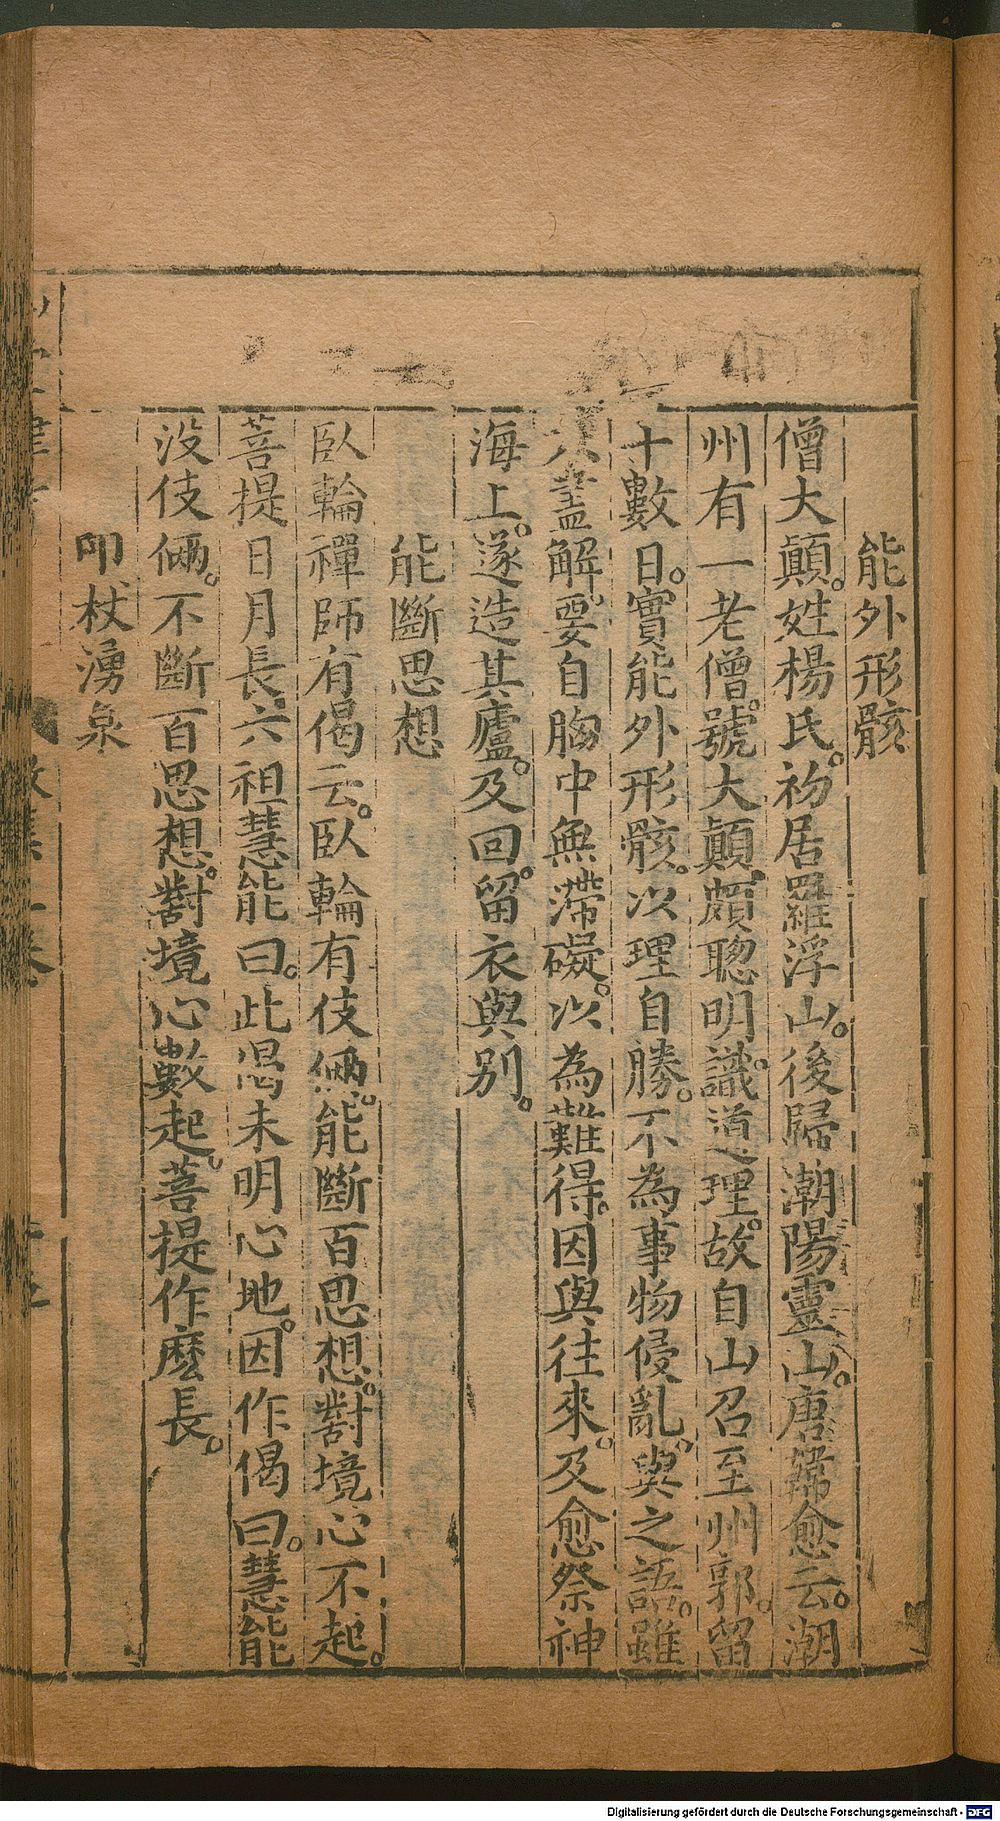 能外形骸
僧大顛。姓楊氏。初居羅浮山。後歸潮陽靈山。唐韓愈云。潮
州有一老僧。號大顛。頗聰明識道理。故自山召至州郭。留
十數日。實能外形骸。以理自勝。不為事物侵亂。與之語。雖
不盡解。要自胸中無滯礙。以為難得。因與往來。及愈祭神
海上。遂造其廬。及回。留衣與别。
能斷思想
臥輪禪師有偈云。臥輪有伎倆。能斷百思想。對境心不起。
菩提日月長。六祖慧能曰。此偈未明心地。因作偈曰。慧能
没伎倆。不斷百思想。對境心數起。菩提作麽長。
叩杖湧泉
Digitalisierung gefördert durch die Deutsche Forschungsgemeinschaft - DFG